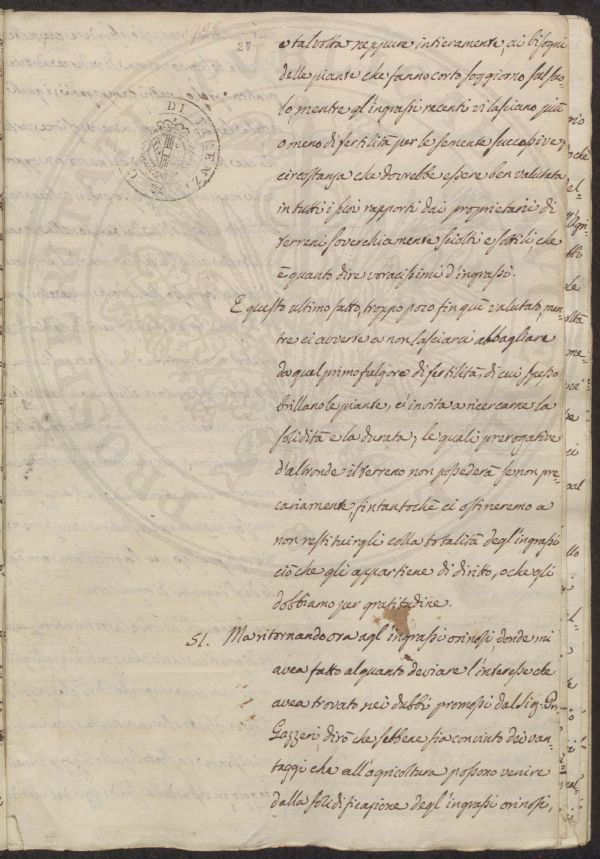 122
27
e talvolta neppure intieramente, ai bisogni
delle piante che fanno corto soggiorno sul suo-
lo, mentre gl'ingrassi recenti vi lasciano più
o meno di fertilità per le semente successive;
circostanza che dovrebbe essere ben valutata
in tutti i suoi rapporti dai proprietarii di
terreni soverchiamente sciolti e sottili, che
è quanto dire voracissimi d'ingrassi.
E questo ultimo fatto, troppo poco fin quì valutato, men-
tre ci avverte a non lasciarci abbagliare
da quel primo fulgore di fertilità, di cui spesso
brillano le piante, ci invita a ricercarne la
solidità e la durata; le quali prerogative
d'altronde il terreno non possederà se non pre-
cariamente, fintantochè ci ostineremo a
non restituirgli colla totalità degl'ingrassi
ciò che gli appartiene di diritto, o che gli
dobbiamo per gratitudine.
51. Ma ritornando ora agl'ingrassi orinosi, donde mi
avea fatto alquanto deviare l'interesse che
avea trovato nei dubbi promossi dal Sig. Pr.
Gazzeri, dirò che, sebbene sia convinto dei van-
taggi che all'agricoltura possono venire
dalla solidificazione degl'ingrassi orinosi,
DI FIRENZE